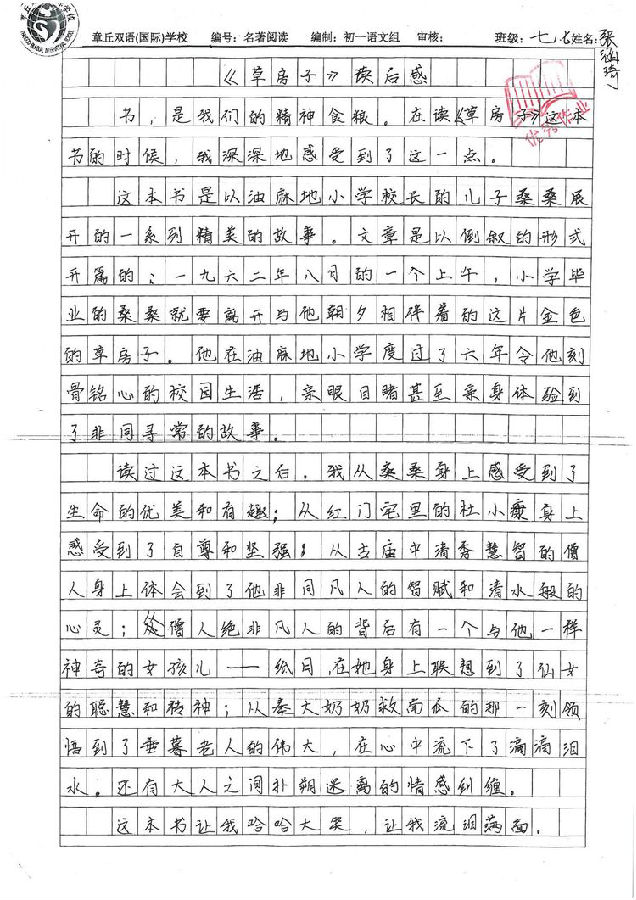 章丘双语(国际)学校 编号：名著阅读 编制：初一语文组 审核： 班级：七 姓名：张
《草房子》读后感
优秀作业
书，是我们的精神食粮。在读《草房子》这本
书的时候，我深深地感受到了这一点。
这本书是以油麻地小学校长的儿子桑桑展
开的一系列精美的故事。文章是以倒叙的形式
开篇的：一九六二年八月的一个上午，小学毕
业的桑桑就要离开与他朝夕相伴着的这片金色
的草房子。他在油麻地小学度过了六年令他刻
骨铭心的校园生活，亲眼目睹甚至亲身体验到
了非同寻常的故事。
读过这本书之后，我从桑桑身上感受到了
生命的优美和有趣；从红门宅里的杜小康身上
感受到了自尊和坚强；从古庙中清香慧智的僧
人身上体会到了他非同凡人的智赋和清水般的
心灵；从僧人绝非凡人的背后有一个与他一样
神奇的女孩儿——纸月，在她身上联想到了仙女
的聪慧和精神；从秦大奶奶救南瓜的那一刻领
悟到了垂暮老人的伟大，在心中流下了滴滴泪
水。还有大人之间扑朔迷离的情感纠缠。
这本书让我哈哈大笑，让我流泪满面。